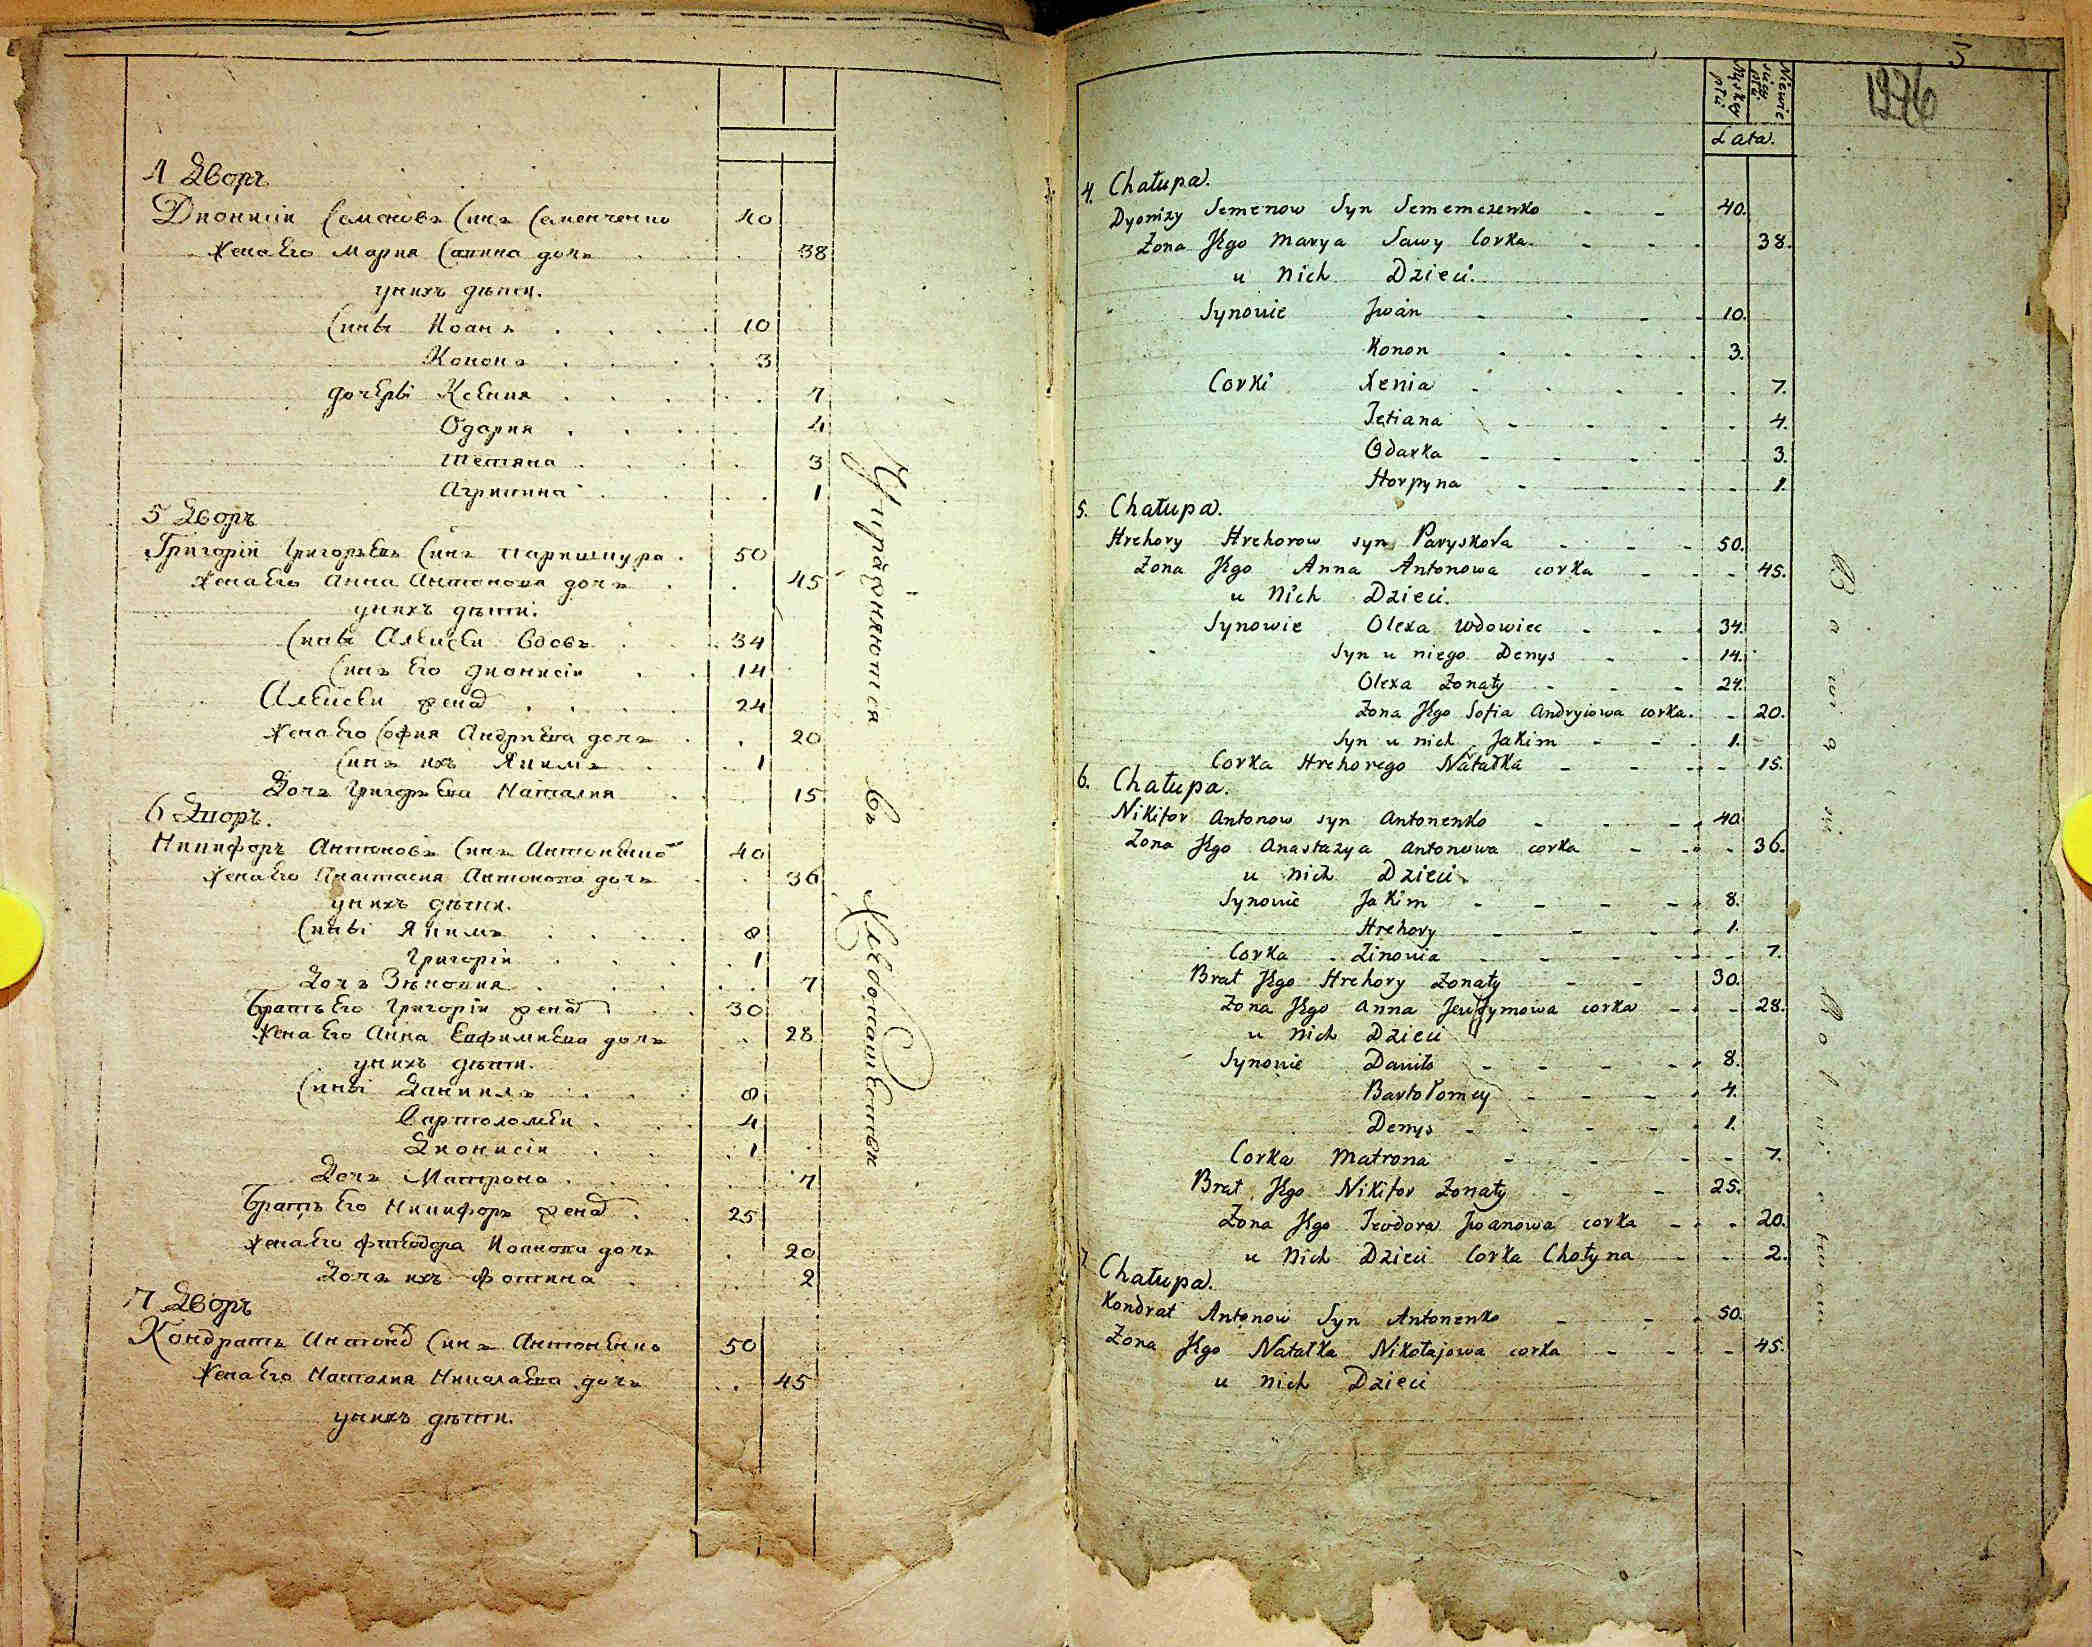 4 Дворъ
Дионисіи Семеновъ Синъ Семенченко 40
Жена Его Мария Савина дочь 38
у нихъ дѣти.
Сины Иоанъ 10
Кононъ 3
дочери Ксения 7
Одария 4
Тетяна 3
Агрипина 1
5 Дворъ
Григорій Григорьевъ Синъ 50
Жена Его Анна Антонова дочь 45
у нихъ дѣти.
Сины Алексеи Вдовъ 34
Синъ Его Дионисіи 14
Алексеи женад 24
Жена Его София Андриева дочь 20
Синъ ихъ Якимъ 1
Дочь Григорьева Наталия 15
6 Дворъ.
Никифоръ Антоновъ Синъ Антоненко 40
Жена Его Анастасия Антонова дочь 36
у нихъ дѣти.
Сины Якимъ 8
Григоріи 1
Дочь Зѣновия 7
Братъ Его Григоріи женад 30
Жена Его Анна Евфимиева дочь 28
у нихъ дѣти.
Сины Даниилъ 8
Вартоломеи 4
Дионисіи 1
Дочь Матрона 7
Братъ Его Никифоръ женад 25
Жена Его Фтеодора Иоанова дочь 20
Дочь ихъ Фотина 2
7 Дворъ
Кондратъ Антонов Синъ Антоненко 50
Жена Его Наталия Николаева дочь 45
у нихъ дѣти.
Упражняются въ Хлебопашестве
5
1276
Męzkiey płci
Niewieściey płci
Lata.
4. Chałupa.
Dyonizy Semenow Syn Sememczenko 40.
Zona Jego Marya Sawy Corka 38.
u Nich Dzieci.
Synowie Jwan 10.
Konon 3.
Corki Xenia 7.
Tetiana 4.
Odarka 3.
Horpyna 1.
5. Chałupa.
Hrehory Hrehorow syn Paryskora 50.
Zona Jego Anna Antonowa corka 45.
u Nich Dzieci.
Synowie Olexa Wdowiec 34.
Syn u niego Denys 14.
Olexa Zonaty 24.
Zona Jego Sofia Andryiowa corka. 20.
Syn u nich Jakim 1.
Corka Hrehorego Natałka 15.
6. Chałupa.
Nikifor Antonow syn Antonenko 40.
Zona Jego Anastazya Antonowa corka 36.
u Nich Dzieci.
Synowie Jakim 8.
Hrehory 1.
Corka Zinowia 7.
Brat Jego Hrehory Zonaty 30.
Zona Jego Anna Jewfymowa corka 28.
u Nich Dzieci
Synowie Daniło 8.
Bartołomey 4.
Denys 1.
Corka Matrona 7.
Brat Jego Nikifor Zonaty 25.
Zona Jego Teodora Jwanowa corka 20.
u Nich Dzieci Corka Chotyna 2.
7. Chałupa.
Kondrat Antonow Syn Antonenko 50.
Zona Jego Natałka Nikołajowa corka 45.
u Nich Dzieci
Bawią się Rolnictwem